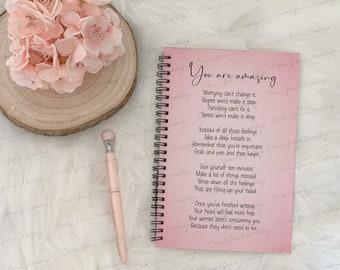 You are amazing
Worrying can't change it.
Regret won't make it stop.
Panicking can't fix it.
Stress won't make it drop.
Instead of all those feelings
Take a deep breath in.
Remember that you're important
Grab and pen and then begin.
Give yourself ten minutes
Make a list of things instead.
Write down all the feelings
That are filling up your head.
Once you've finished writing
Your head will feel more free.
Your worries aren't consuming you
Because they don't need to be.